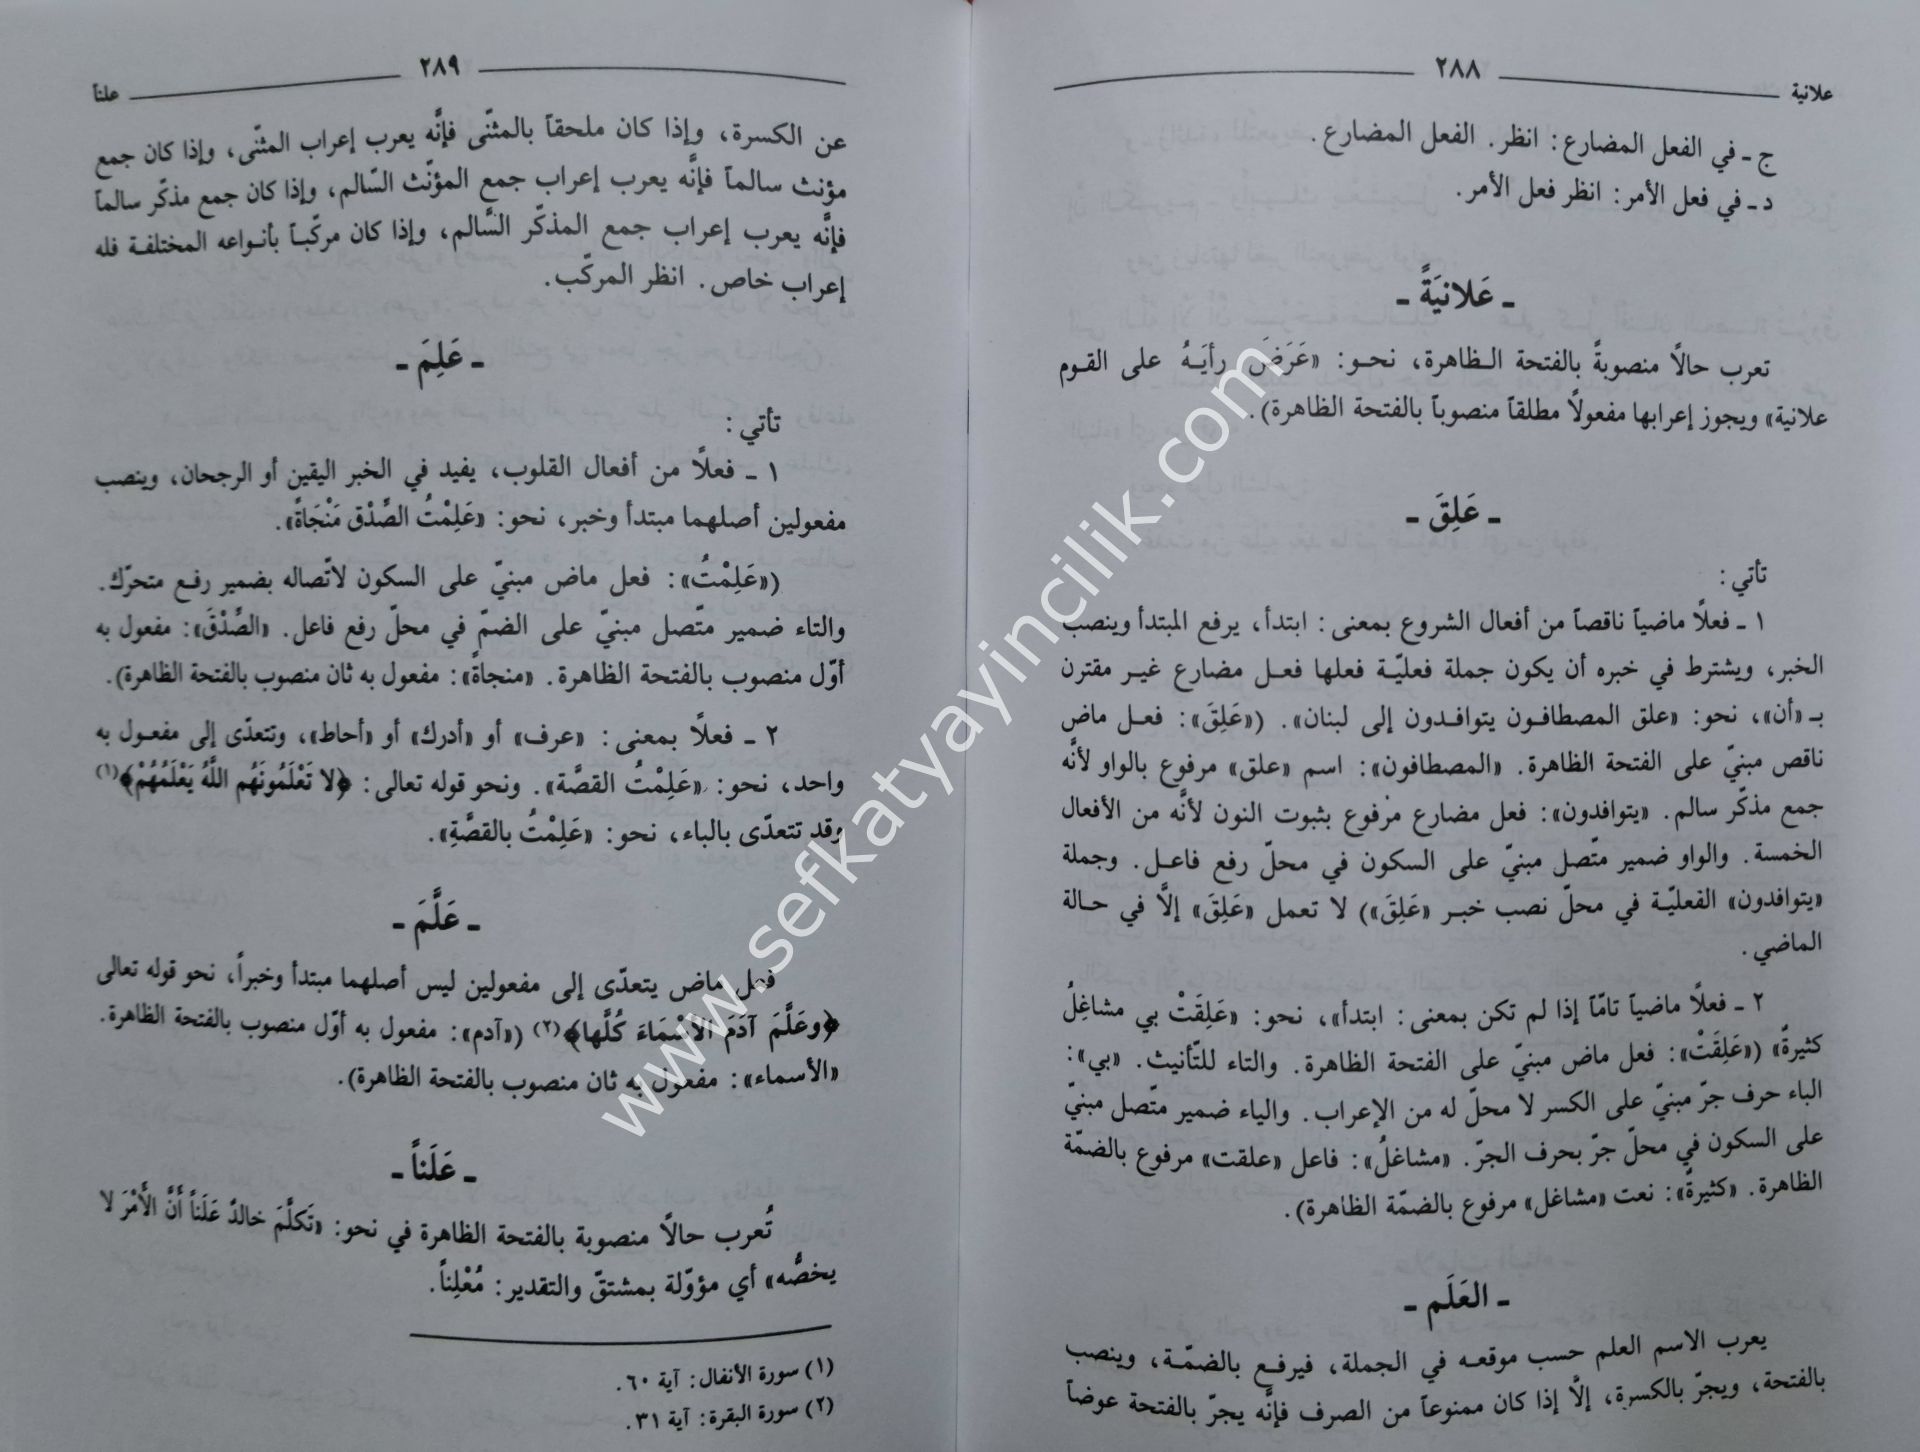 علانية
٢٨٨
ج ـ في الفعل المضارع: انظر. الفعل المضارع.
د ـ في فعل الأمر: انظر فعل الأمر.
ـ عَلانيَةً ـ
تعرب حالاً منصوبةً بالفتحة الظاهرة، نحو: «عَرَضَ رأيَهُ على القوم
علانية» ويجوز إعرابها مفعولاً مطلقاً منصوباً بالفتحة الظاهرة).
ـ عَلِقَ ـ
تأتي:
١ ـ فعلاً ماضياً ناقصاً من أفعال الشروع بمعنى: ابتدأ، يرفع المبتدأ وينصب
الخبر، ويشترط في خبره أن يكون جملة فعليّة فعلها فعل مضارع غير مقترن
بـ «أن»، نحو: «علق المصطافون يتوافدون إلى لبنان». («عَلِقَ»: فعل ماض
ناقص مبنيّ على الفتحة الظاهرة. «المصطافون»: اسم «علق» مرفوع بالواو لأنَّه
جمع مذكّر سالم. «يتوافدون»: فعل مضارع مرفوع بثبوت النون لأنَّه من الأفعال
الخمسة. والواو ضمير متّصل مبنيّ على السكون في محلّ رفع فاعل. وجملة
«يتوافدون» الفعليّة في محلّ نصب خبر «عَلِقَ») لا تعمل «عَلِقَ» إلاَّ في حالة
الماضي.
٢ ـ فعلاً ماضياً تامّا إذا لم تكن بمعنى: ابتدأ»، نحو: «عَلِقَتْ بي مشاغِلُ
كثيرةً» («عَلِقَتْ»: فعل ماض مبنيّ على الفتحة الظاهرة. والتاء للتّأنيث. «بي»:
الباء حرف جرّ مبنيّ على الكسر لا محلّ له من الإعراب. والياء ضمير متّصل مبنيّ
على السكون في محلّ جرّ بحرف الجرّ. «مشاغلُ»: فاعل «علقت» مرفوع بالضمّة
الظاهرة. «كثيرةً»: نعت «مشاغل» مرفوع بالضمّة الظاهرة).
ـ العَلَم ـ
يعرب الاسم العلم حسب موقعه في الجملة، فيرفع بالضمّة، وينصب
بالفتحة، ويجرّ بالكسرة، إلَّا إذا كان ممنوعاً من الصرف فإنَّه يجرّ بالفتحة عوضاً
٢٨٩
علناً
عن الكسرة، وإذا كان ملحقاً بالمثنّى فإنَّه يعرب إعراب المثنّى، وإذا كان جمع
مؤنث سالماً فإنَّه يعرب إعراب جمع المؤنّث السّالم، وإذا كان جمع مذكّر سالماً
فإنَّه يعرب إعراب جمع المذكّر السَّالم، وإذا كان مركّباً بأنواعه المختلفة فله
إعراب خاص. انظر المركّب.
ـ عَلِمَ ـ
تأتي:
١ ـ فعلاً من أفعال القلوب، يفيد في الخبر اليقين أو الرجحان، وينصب
مفعولين أصلهما مبتدأ وخبر، نحو: «عَلِمْتُ الصِّدْق مَنْجَاةً».
(«عَلِمْتُ»: فعل ماض مبنيّ على السكون لاتّصاله بضمير رفع متحرّك.
والتاء ضمير متّصل مبنيّ على الضمّ في محلّ رفع فاعل. «الصِّدْقَ»: مفعول به
أوّل منصوب بالفتحة الظاهرة. «منجاةً»: مفعول به ثان منصوب بالفتحة الظاهرة).
٢ ـ فعلاً بمعنى: «عرف» أو «أدرك» أو «أحاط»، وتتعدّى إلى مفعول به
واحد، نحو: «عَلِمْتُ القصَّة». ونحو قوله تعالى: ﴿لا تَعْلَمُونَهُم اللَّهُ يَعْلَمُهُمْ﴾(١)
وقد تتعدّى بالباء، نحو: «عَلِمْتُ بالقصَّةِ».
ـ عَلَّمَ ـ
فعل ماض يتعدّى إلى مفعولين ليس أصلهما مبتدأ وخبراً، نحو قوله تعالى
﴿وعَلَّمَ آدَمَ الأسْمَاءَ كُلَّها﴾(٢) («آدم»: مفعول به أوّل منصوب بالفتحة الظاهرة.
«الأسماء»: مفعول به ثان منصوب بالفتحة الظاهرة).
ـ عَلَناً ـ
تُعرب حالاً منصوبة بالفتحة الظاهرة في نحو: «تَكلَّمَ خالدٌ عَلَناً أنَّ الأَمْرَ لا
يخصُّه» أي مؤوّلة بمشتقّ والتقدير: مُعْلِناً.
(١) سورة الأنفال: آية ٦٠.
(٢) سورة البقرة: آية ٣١.
www.sefkatyayincilik.com